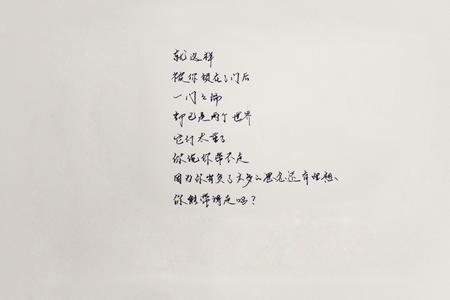 就这样
被你锁在了门后
一门之隔
却已是两个世界
它们太重了
你说你带不走
因为你背负了太多的思念还有理想、
你能带得走吗？